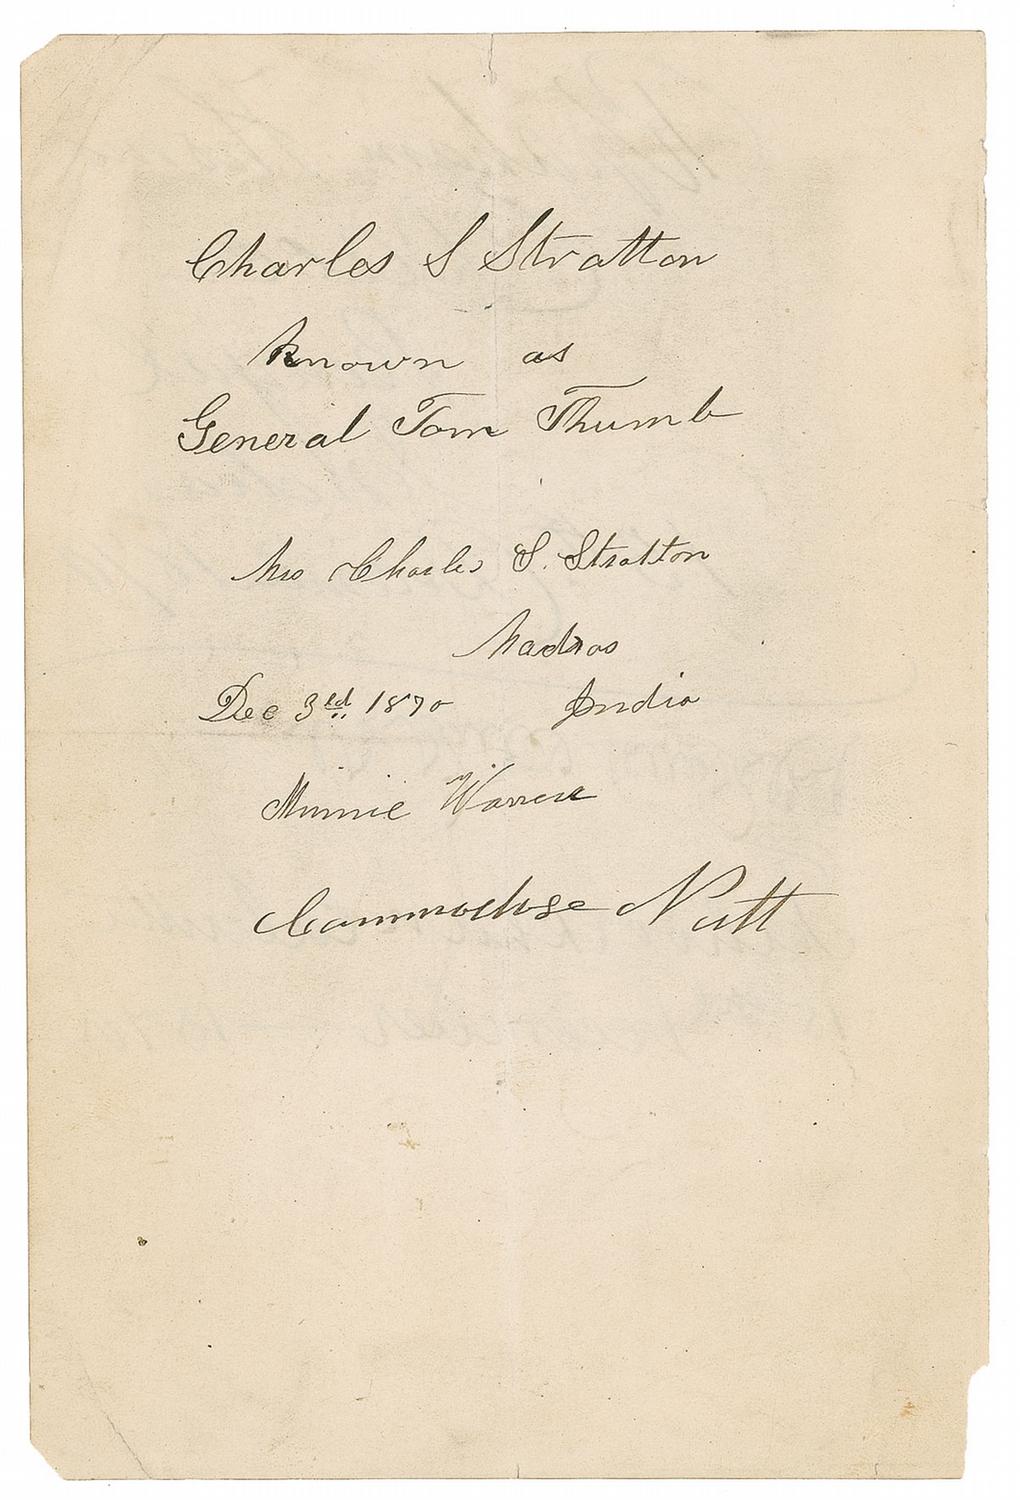 Charles S Stratton
known as
General Tom Thumb
Mrs Charles S. Stratton
Madras
Dec 3rd 1870 India
Minnie Warren
Commodore Nutt